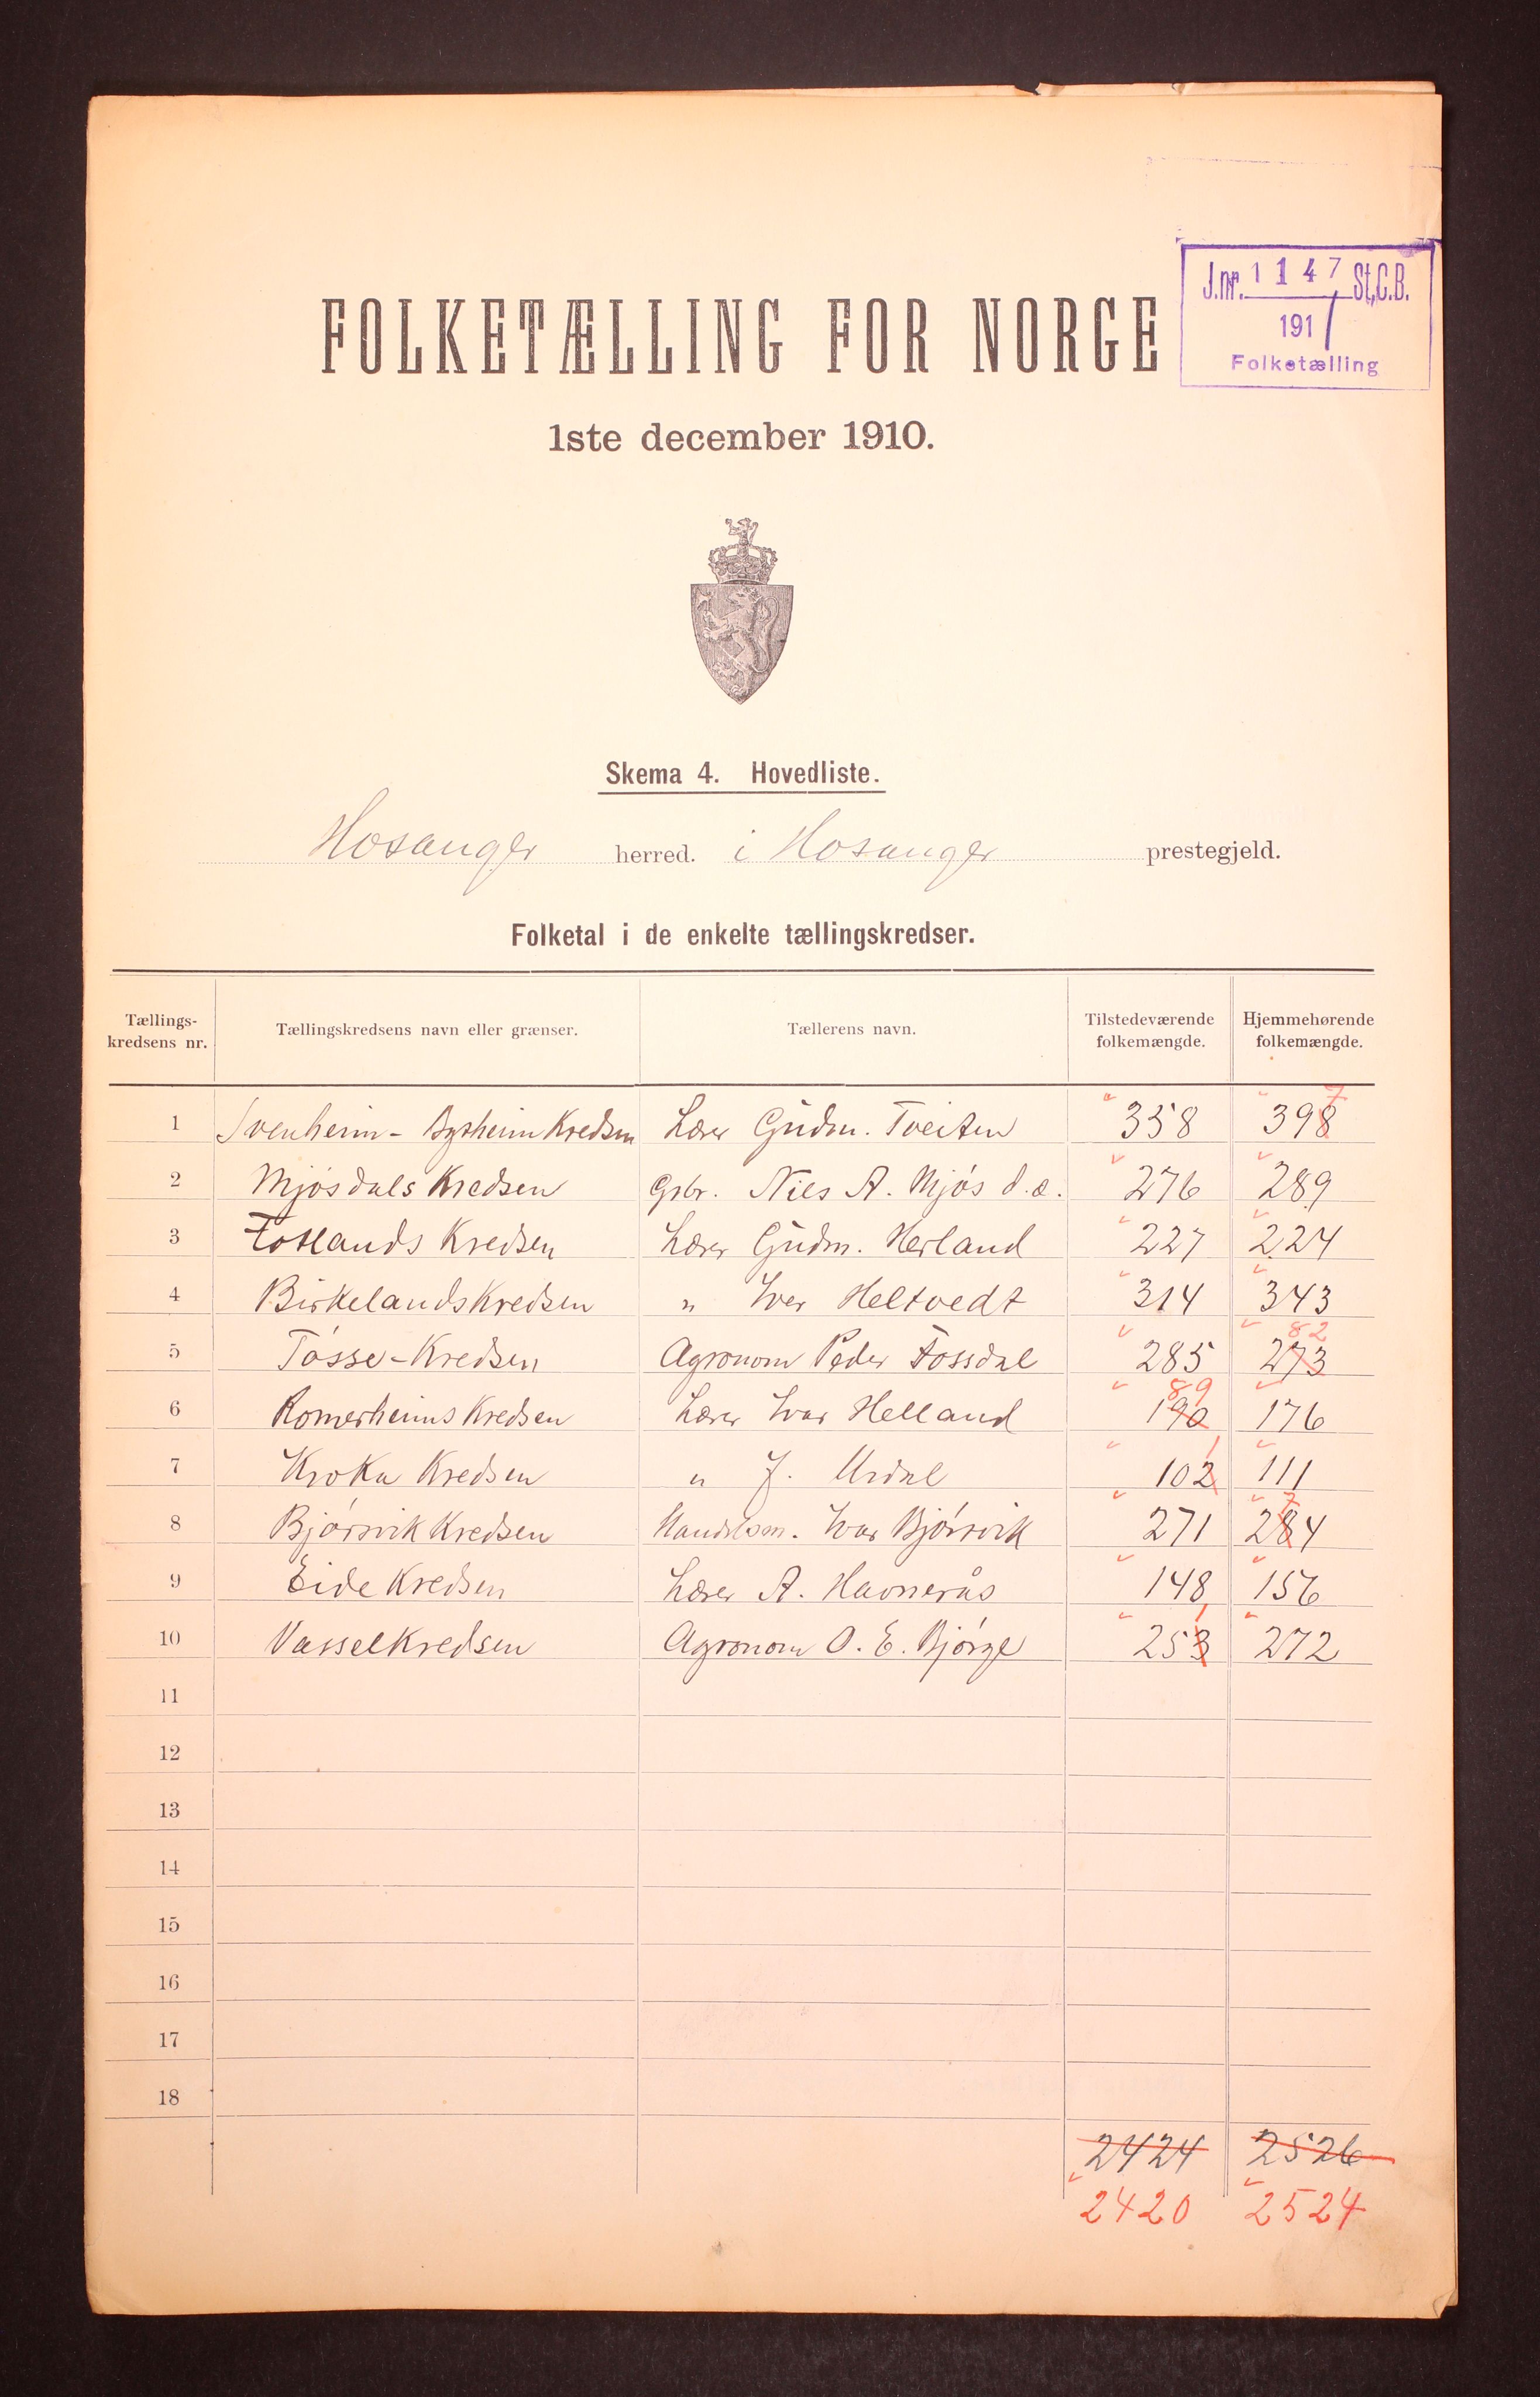 J.nr. 1147 St.C.B.
1911
Folketælling
FOLKETÆLLING FOR NORGE
1ste december 1910.
Skema 4. Hovedliste.
Hosanger herred. i Hosanger prestegjeld.
Folketal i de enkelte tællingskredser.
Tællings-kredsens nr. Tællingskredsens navn eller grænser. Tællerens navn. Tilstedeværende folkemængde. Hjemmehørende folkemængde.
7
1 Svenheim - Byrheim Kredsen Lærer Gudm. Tveiten 358 398
2 Mjøsdals Kredsen Gsbr. Nils A. Mjøs d.æ. 276 289
3 Fotlands Kredsen Lærer Gudm. Herland 227 224
4 Birkelands Kredsen " Iver Heltvedt 314 343
82
5 Tøsse-Kredsen Agronom Peder Fossdal 285 273
89
6 Romerheims Kredsen Lærer Ivar Helland 190 176
1
7 Kroka Kredsen " J. Urdal 102 111
7
8 Bjørsvik Kredsen Handelsm. Ivar Bjørsvik 271 284
9 Eide Kredsen Lærer A. Havnerås 148 156
1
10 Vasselkredsen Agronom O. E. Bjørge 253 272
11
12
13
14
15
16
17
18
2424 2526
2420 2524